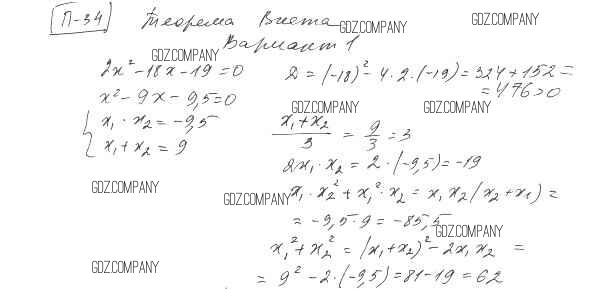 П-34 Теорема Виета GDZ.COMPANY GDZ.COMPANY
Вариант 1
GDZ.COMPANY
2x² - 18x - 19 = 0 D = (-18)² - 4·2·(-19) = 324 + 152 =
= 476 > 0
x² - 9x - 9,5 = 0
GDZ.COMPANY GDZ.COMPANY
{ x₁ · x₂ = -9,5
x₁ + x₂ = 9
(x₁ + x₂)/3 = 9/3 = 3
2x₁ · x₂ = 2 · (-9,5) = -19
GDZ.COMPANY GDZ.COMPANY
x₁ · x₂² + x₁² · x₂ = x₁x₂(x₂ + x₁) =
= -9,5 · 9 = -85,5
GDZ.COMPANY
x₁² + x₂² = (x₁ + x₂)² - 2x₁x₂ =
GDZ.COMPANY
= 9² - 2·(-9,5) = 81 - 19 = 62